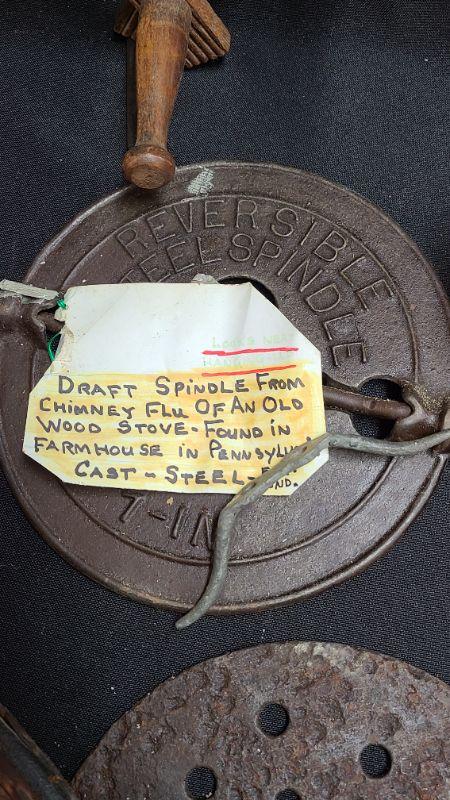 REVERSIBLE
STEEL SPINDLE
LOOKS
DRAFT SPINDLE FROM
CHIMNEY FLU OF AN OLD
WOOD STOVE - FOUND IN
FARMHOUSE IN
CAST - STEEL -
7-IN